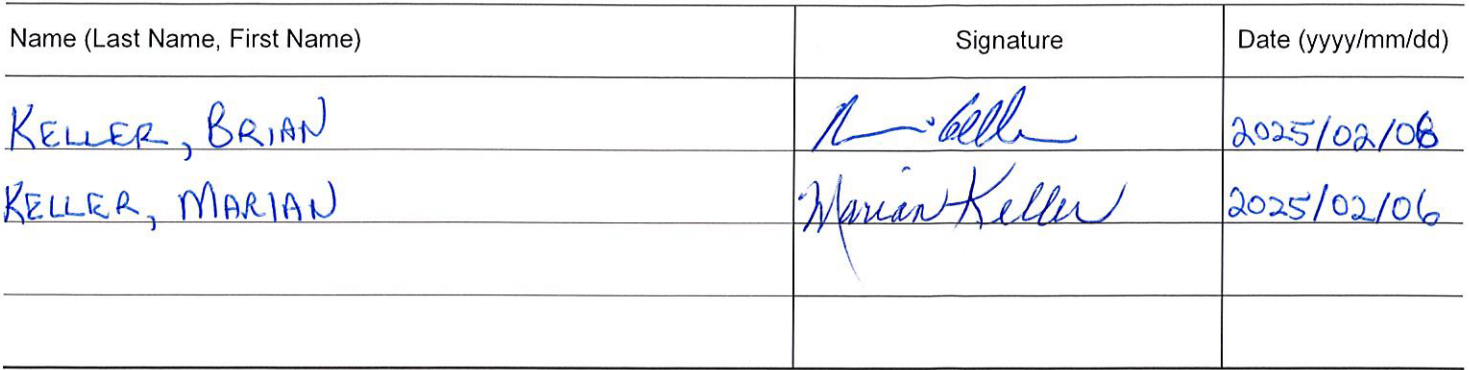 Name (Last Name, First Name) Signature Date (yyyy/mm/dd)
KELLER, BRIAN 2025/02/06
KELLER, MARIAN Marian Keller 2025/02/06